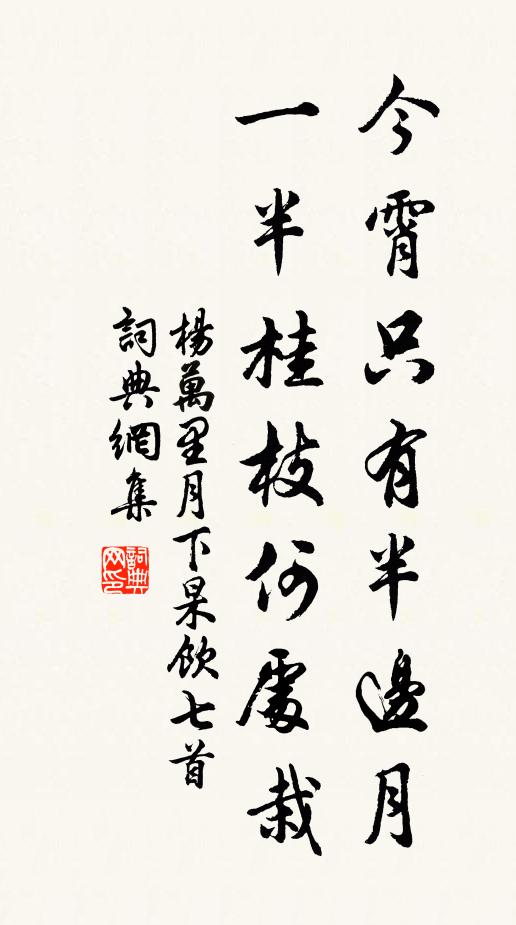 今霄只有半邊月
一半桂枝何處栽
楊萬里月下杲飲七首
詞典網集
詞典网印